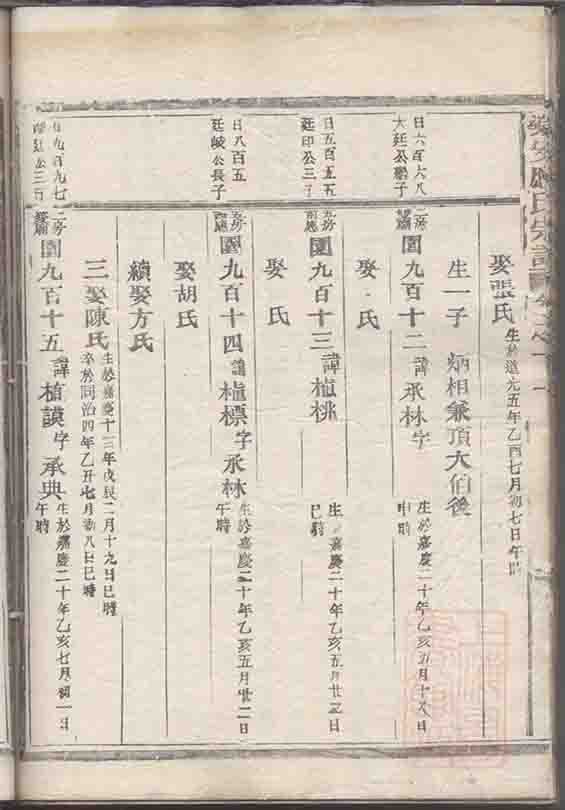 娶張氏
生於道光五年乙酉七月初七日午時
生一子
炳相兼頂大伯後
日六百六八
大廷公繼子
二房
園九百十二
諱承林字
生於嘉慶二十年乙亥五月十八日
申時
娶 氏
日五百五五
廷印公三子
園九百十三
諱植桃
生 嘉慶二十年乙亥五月廿 日
巳時
娶 氏
日八百五
廷岐公長子
園九百十四
諱植標字承林
生於嘉慶二十年乙亥五月廿二日
午時
娶胡氏
續娶方氏
三娶陳氏
生於嘉慶十三年戊辰二月十九日巳時
卒於同治四年乙丑七月初八日巳時
九百九七
廷公三子
二房
園九百十五
諱植謨字承典
生於嘉慶二十年乙亥七月初一日
午時